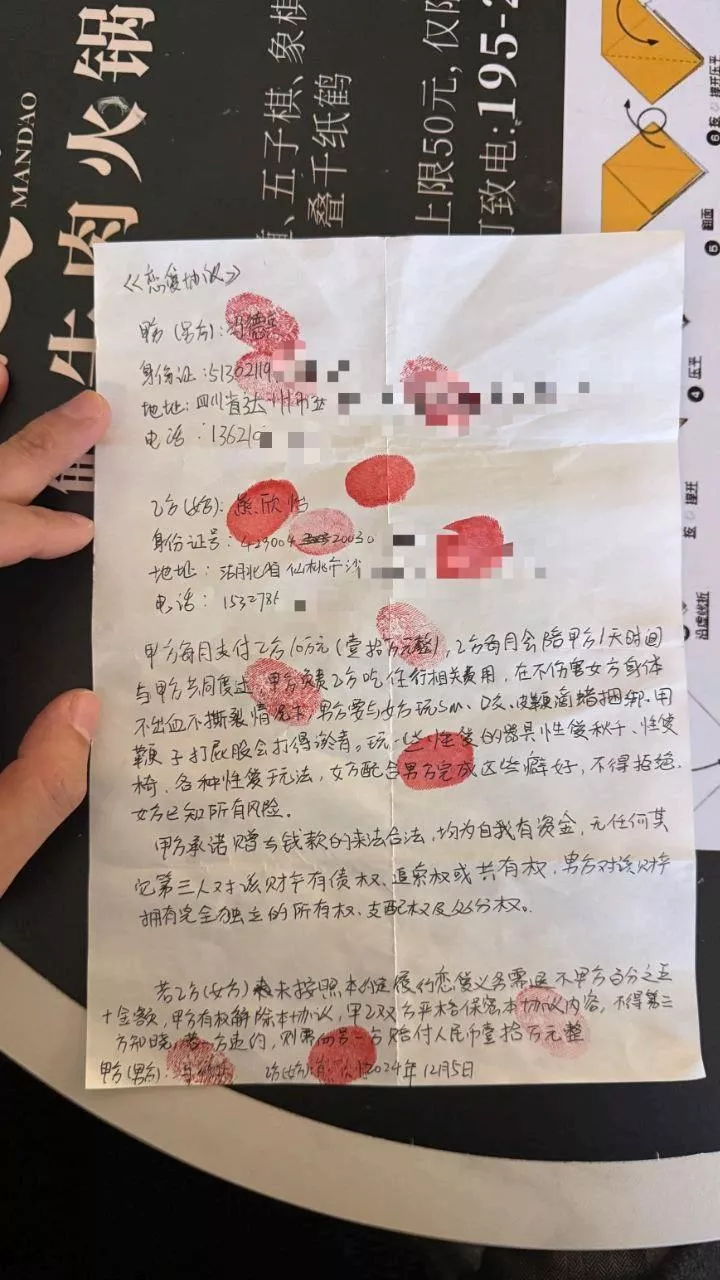 牛肉火锅
MANDAO
、五子棋、象棋
叠千纸鹤
上限50元，仅限
致电:195-2
压平
翻面
压平
沿虚线折
《恋爱协议》
甲方(男方):
身份证:51302119
地址:四川省达州市
电话:13621
乙方(女方):熊欣怡
身份证号:429004 20030
地址:湖北省仙桃市沙
电话:1532786
甲方每月支付乙方10万元(壹拾万元整),乙方每月会陪甲方1天时间
与甲方共同度过,甲方负责乙方吃住行相关费用,在不伤害女方身体
不出血不撕裂情况下,男方要与女方玩sm、 皮鞭滴蜡捆绑.用
鞭子打屁股会打得淤青。玩一些性爱的器具性爱秋千、性爱
椅、各种性爱玩法,女方配合男方完成这些癖好,不得拒绝.
女方已知所有风险。
甲方承诺赠与钱款的来法合法,均为自我有资金,无任何其
它第三人对该财产有债权、追索权或共有权,男方对该财产
拥有完全独立的所有权、支配权及处分权。
若乙方(女方)未按照本约定履行恋爱义务需退 甲方百分之五
十金额,甲方有权解除本协议,甲乙双方严格保密本协议内容,不得第三
方知晓,若一方违约,则需向另一方赔付人民币壹拾万元整
甲方(男方): 乙方(女方): 2024年12月5日